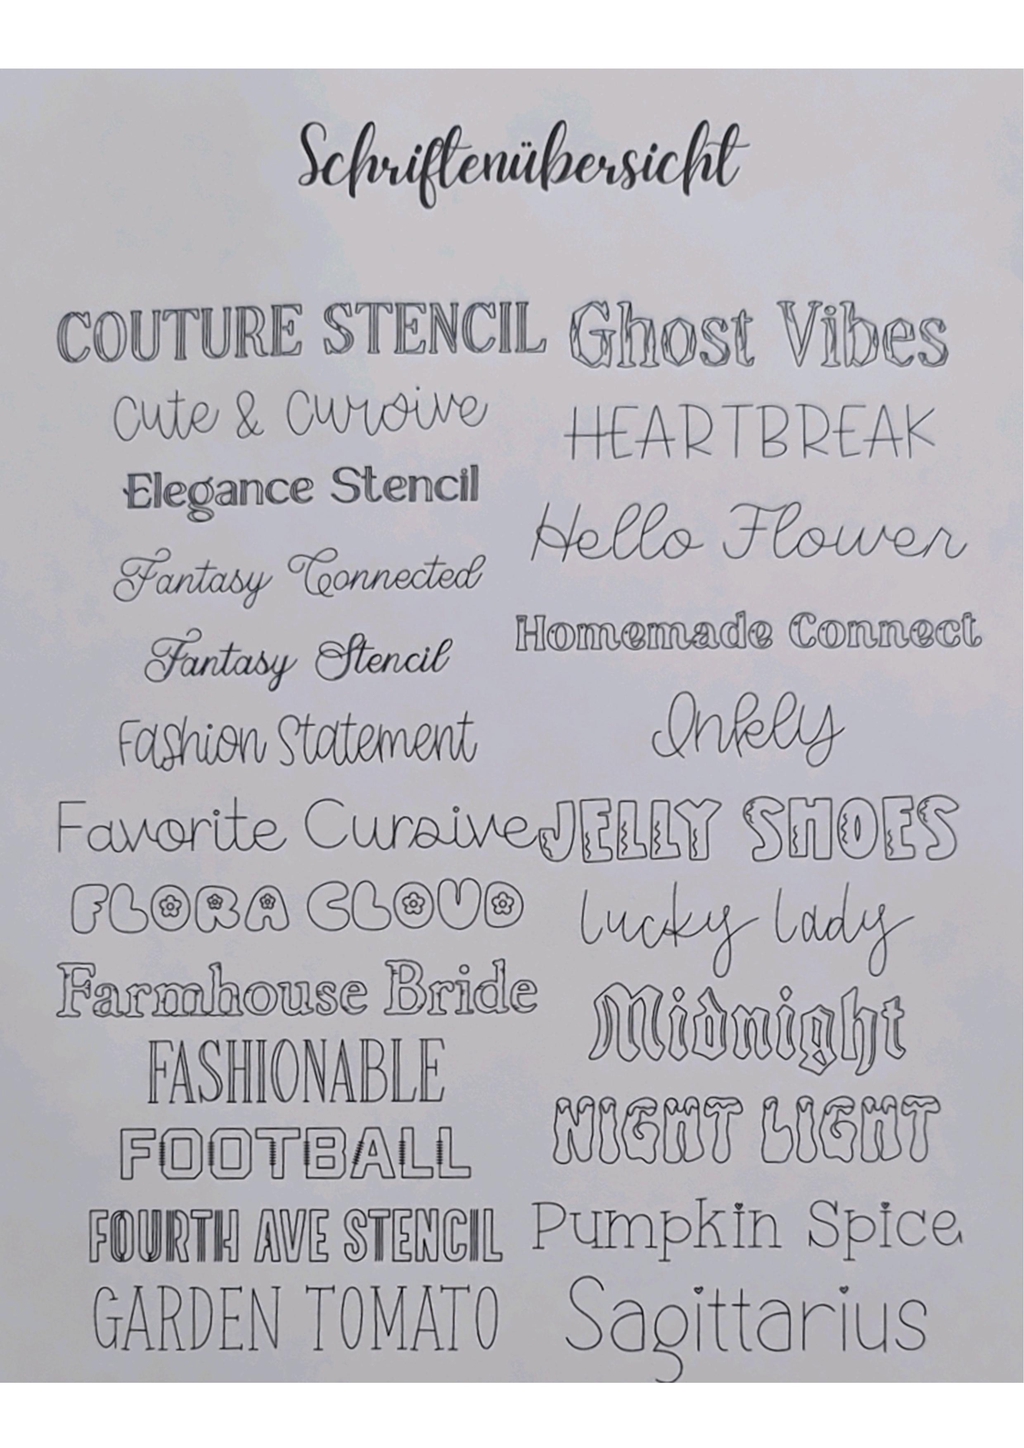 Schriftenübersicht
COUTURE STENCIL
Cute & Cursive
Elegance Stencil
Fantasy Connected
Fantasy Stencil
Fashion Statement
Favorite Cursive
FLORA CLOUD
Farmhouse Bride
FASHIONABLE
FOOTBALL
FOURTH AVE STENCIL
GARDEN TOMATO
Ghost Vibes
HEARTBREAK
Hello Flower
Homemade Connect
Inkly
JELLY SHOES
Lucky Lady
Midnight
NIGHT LIGHT
Pumpkin Spice
Sagittarius